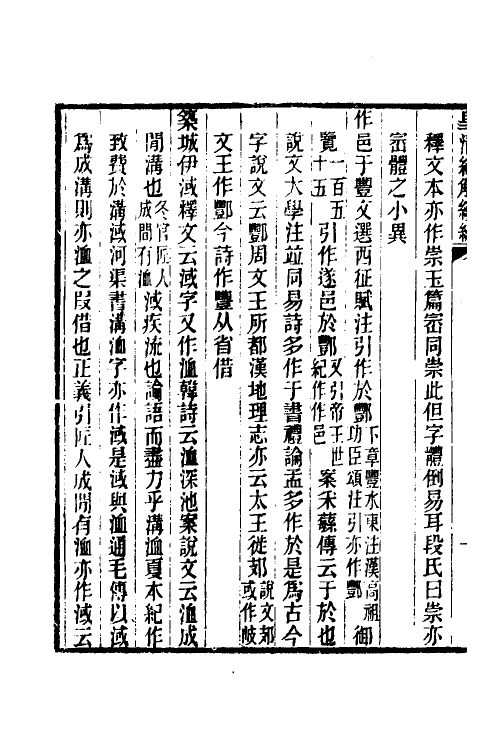 皇清經解續編
釋文本亦作崇玉篇崈同崇此但字體倒易耳段氏曰崇亦
崈體之小異
作邑于豐文選西征賦注引作於酆下章豐水東注漢高祖功臣頌注引亦作酆御
覽一百五十五引作遂邑於酆又引帝王世紀作作邑案釆蘩傳云于於也
說文大學注竝同易詩多作于書禮論孟多作於是爲古今
字說文云酆周文王所都漢地理志亦云太王徙郂說文郂或作岐
文王作酆今詩作豐从省借
築城伊淢釋文云淢字又作洫韓詩云洫深池案說文云洫成
閒溝也冬官匠人成閒有洫淢疾流也論語而盡力乎溝洫夏本紀作
致費於溝淢河渠書溝洫字亦作淢是淢與洫通毛傳以淢
爲成溝則亦洫之叚借也正義引匠人成閒有洫亦作淢云